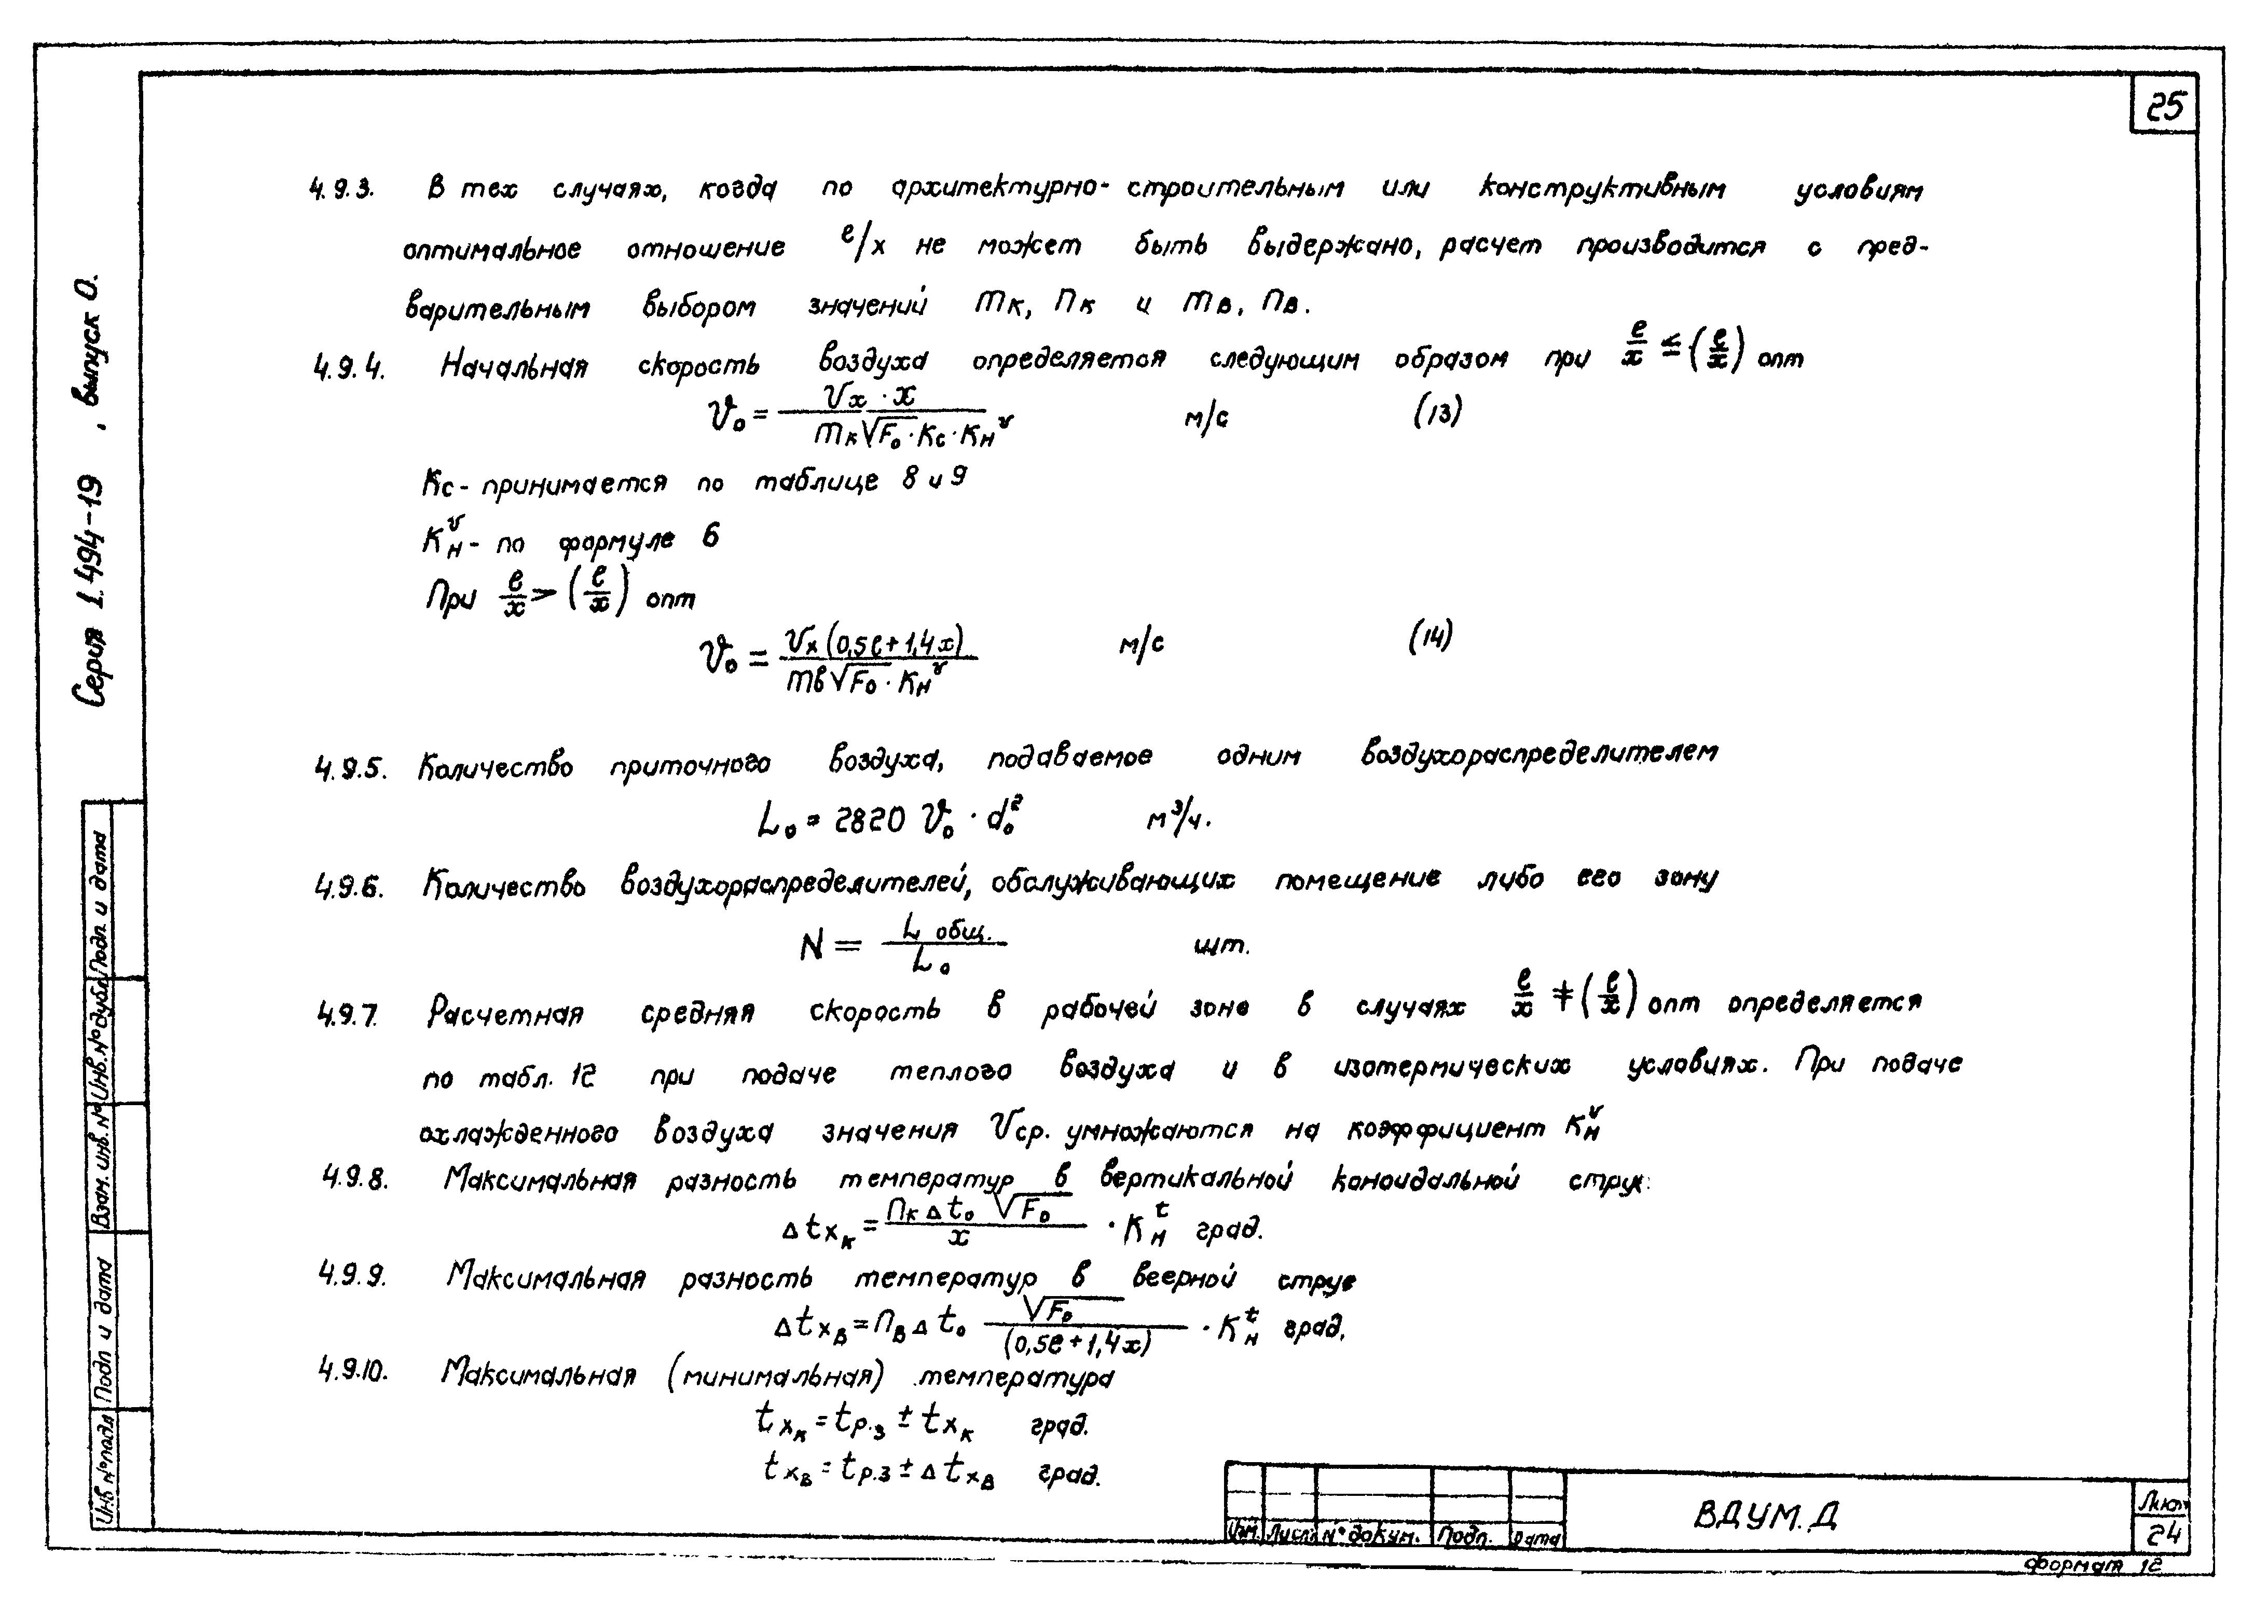 25
4.9.3. В тех случаях, когда по архитектурно-строительным или конструктивным условиям
оптимальное отношение ℓ/x не может быть выдержано, расчет производится с пред-
варительным выбором значений mк, nк и mв, nв.
4.9.4. Начальная скорость воздуха определяется следующим образом при ℓ/x ≤ (ℓ/x) опт
v₀ = (vx · x) / (mк√F₀ · Kс · Kн^v) м/с (13)
Kс - принимается по таблице 8 и 9
Kн^v - по формуле 6
При ℓ/x > (ℓ/x) опт
v₀ = vx (0,5ℓ + 1,4x) / (mв√F₀ · Kн^v) м/с (14)
4.9.5. Количество приточного воздуха, подаваемое одним воздухораспределителем
L₀ = 2820 v₀ · d₀² м³/ч.
4.9.6. Количество воздухораспределителей, обслуживающих помещение либо его зону
N = L общ. / L₀ шт.
4.9.7. Расчетная средняя скорость в рабочей зоне в случаях ℓ/x ≠ (ℓ/x) опт определяется
по табл. 12 при подаче теплого воздуха и в изотермических условиях. При подаче
охлажденного воздуха значения vср. умножаются на коэффициент Kн^v
4.9.8. Максимальная разность температур в вертикальной коноидальной струе
Δtxк = (nк Δt₀ √F₀) / x · Kн^t град.
4.9.9. Максимальная разность температур в веерной струе
Δtxв = nв Δt₀ √F₀ / (0,5ℓ + 1,4x) · Kн^t град.
4.9.10. Максимальная (минимальная) температура
txк = tр.з ± txк град.
txв = tр.з ± Δtxв град.
Серия 1.494-19, выпуск 0.
Подп. и дата
Инв. № дубл.
Взам. инв. №
Подп и дата
Инв № подл
Изм. Лист № докум. Подп. Дата
ВДУМ.Д
Лист
24
формат 12